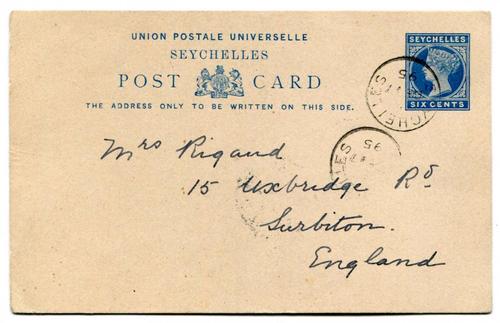 UNION POSTALE UNIVERSELLE
SEYCHELLES
POST CARD
THE ADDRESS ONLY TO BE WRITTEN ON THIS SIDE.
SEYCHELLES
SIX CENTS
SEYCHELLES
95
LES
95
Mrs Rigaud
15 Uxbridge Rd
Surbiton
England